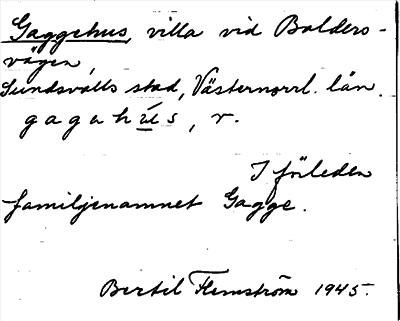 Gaggehus, villa vid Balders-
vägen,
Sundsvalls stad, Västernorrl. län.
gagahús, r.
I förleden
familjenamnet Gagge.
Bertil Flemström 1945.